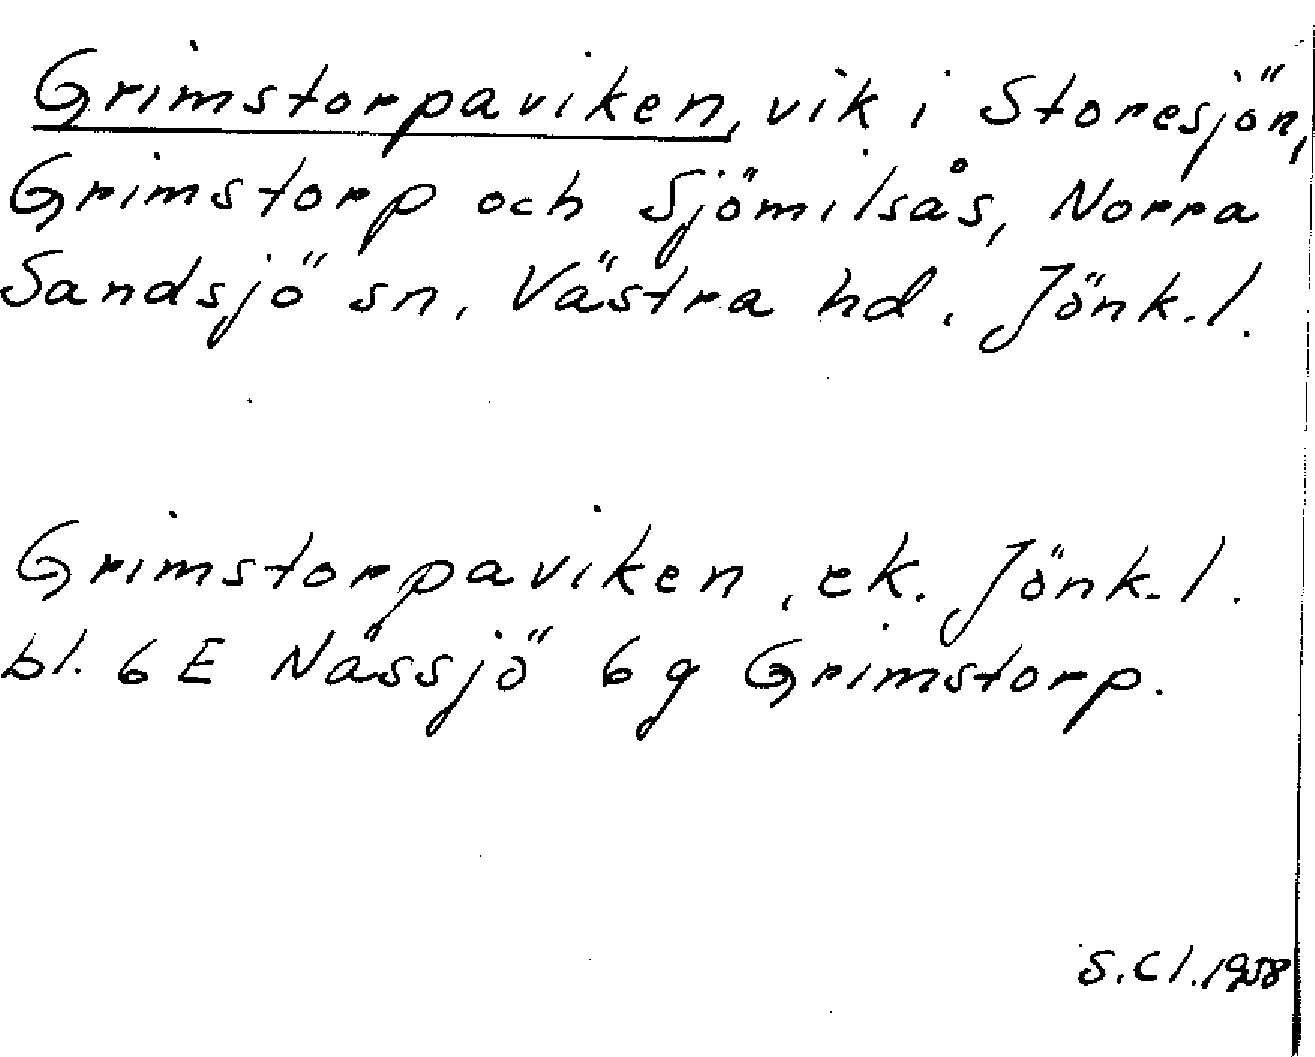 Grimstorpaviken, vik i Storesjön,
Grimstorp och Sjömilsås, Norra
Sandsjö sn. Västra hd. Jönk.l.
Grimstorpaviken, ek. Jönk.l.
bl. 6 E Nässjö 6 g Grimstorp.
S.Cl.1958